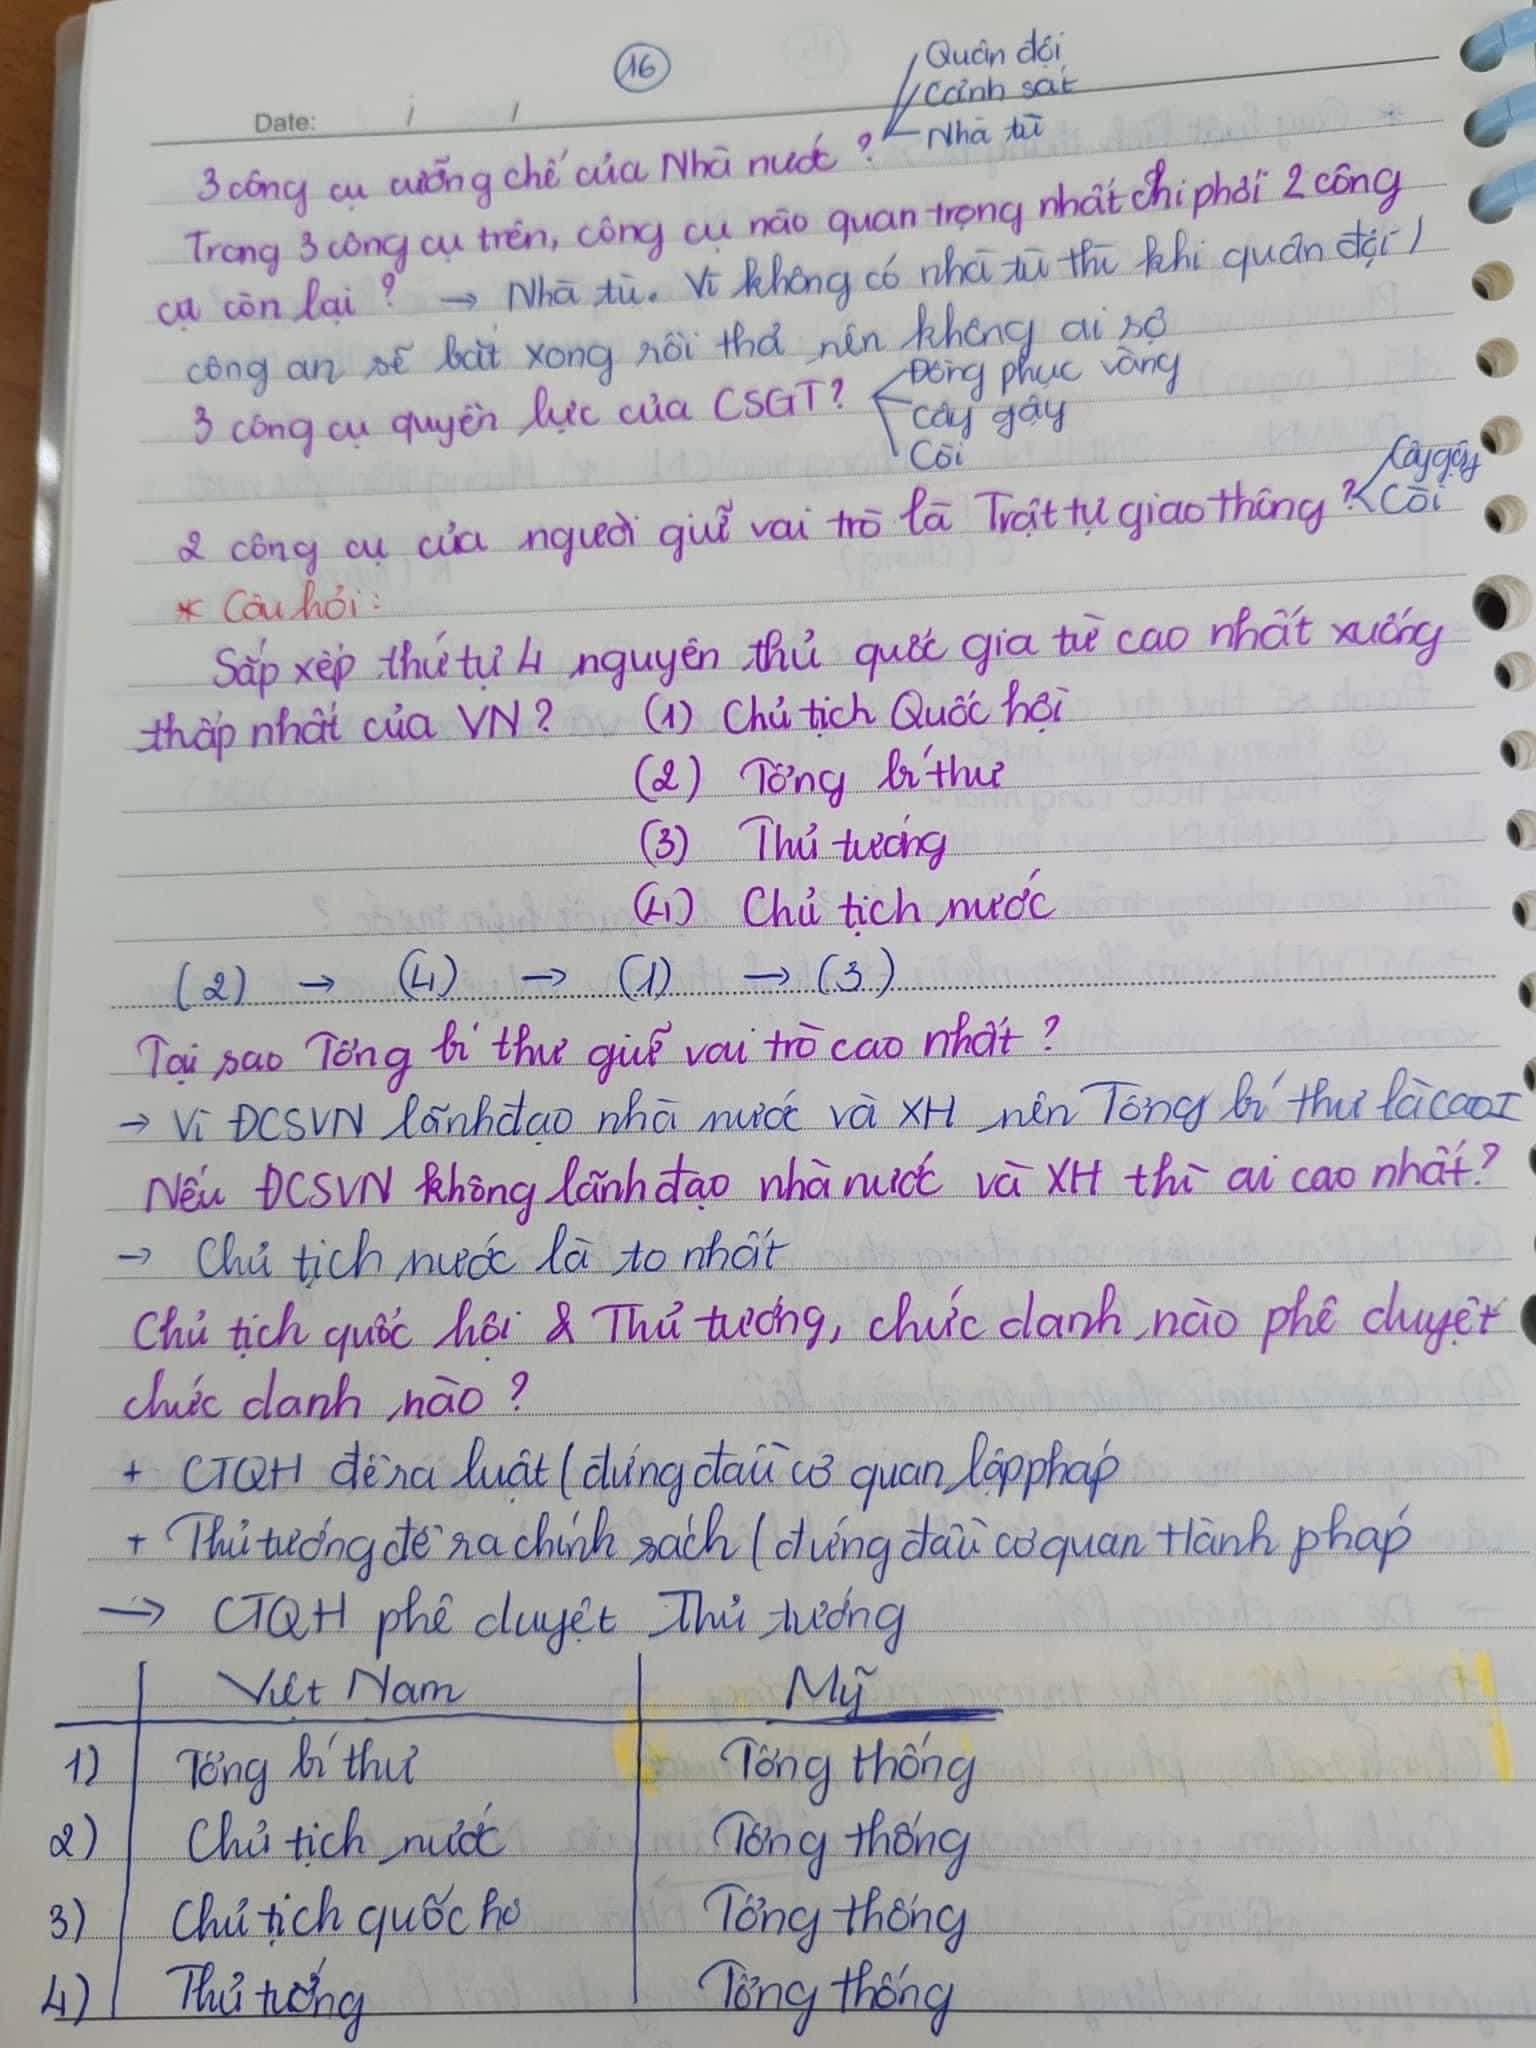 16
Quân đội
Cảnh sát
Nhà tù
Date: / /
3 công cụ cưỡng chế của Nhà nước?
Trong 3 công cụ trên, công cụ nào quan trọng nhất chi phối 2 công
cụ còn lại? → Nhà tù. Vì không có nhà tù thì khi quân đội /
công an sẽ bắt xong rồi thả nên không ai sợ
3 công cụ quyền lực của CSGT?
Đồng phục vàng
Cây gậy
Còi
2 công cụ của người giữ vai trò là Trật tự giao thông?
Cây gậy
Còi
* Câu hỏi:
Sắp xếp thứ tự 4 nguyên thủ quốc gia từ cao nhất xuống
thấp nhất của VN? (1) Chủ tịch Quốc hội
(2) Tổng bí thư
(3) Thủ tướng
(4) Chủ tịch nước
(2) → (4) → (1) → (3)
Tại sao Tổng bí thư giữ vai trò cao nhất?
→ Vì ĐCSVN lãnh đạo nhà nước và XH nên Tổng bí thư là cao I
Nếu ĐCSVN không lãnh đạo nhà nước và XH thì ai cao nhất?
→ Chủ tịch nước là to nhất
Chủ tịch quốc hội & Thủ tướng, chức danh nào phê duyệt
chức danh nào?
+ CTQH đề ra luật (đứng đầu cơ quan lập pháp
+ Thủ tướng đề ra chính sách (đứng đầu cơ quan Hành pháp
→ CTQH phê duyệt Thủ tướng
Việt Nam Mỹ
1) Tổng bí thư Tổng thống
2) Chủ tịch nước Tổng thống
3) Chủ tịch quốc hộ Tổng thống
4) Thủ tướng Tổng thống